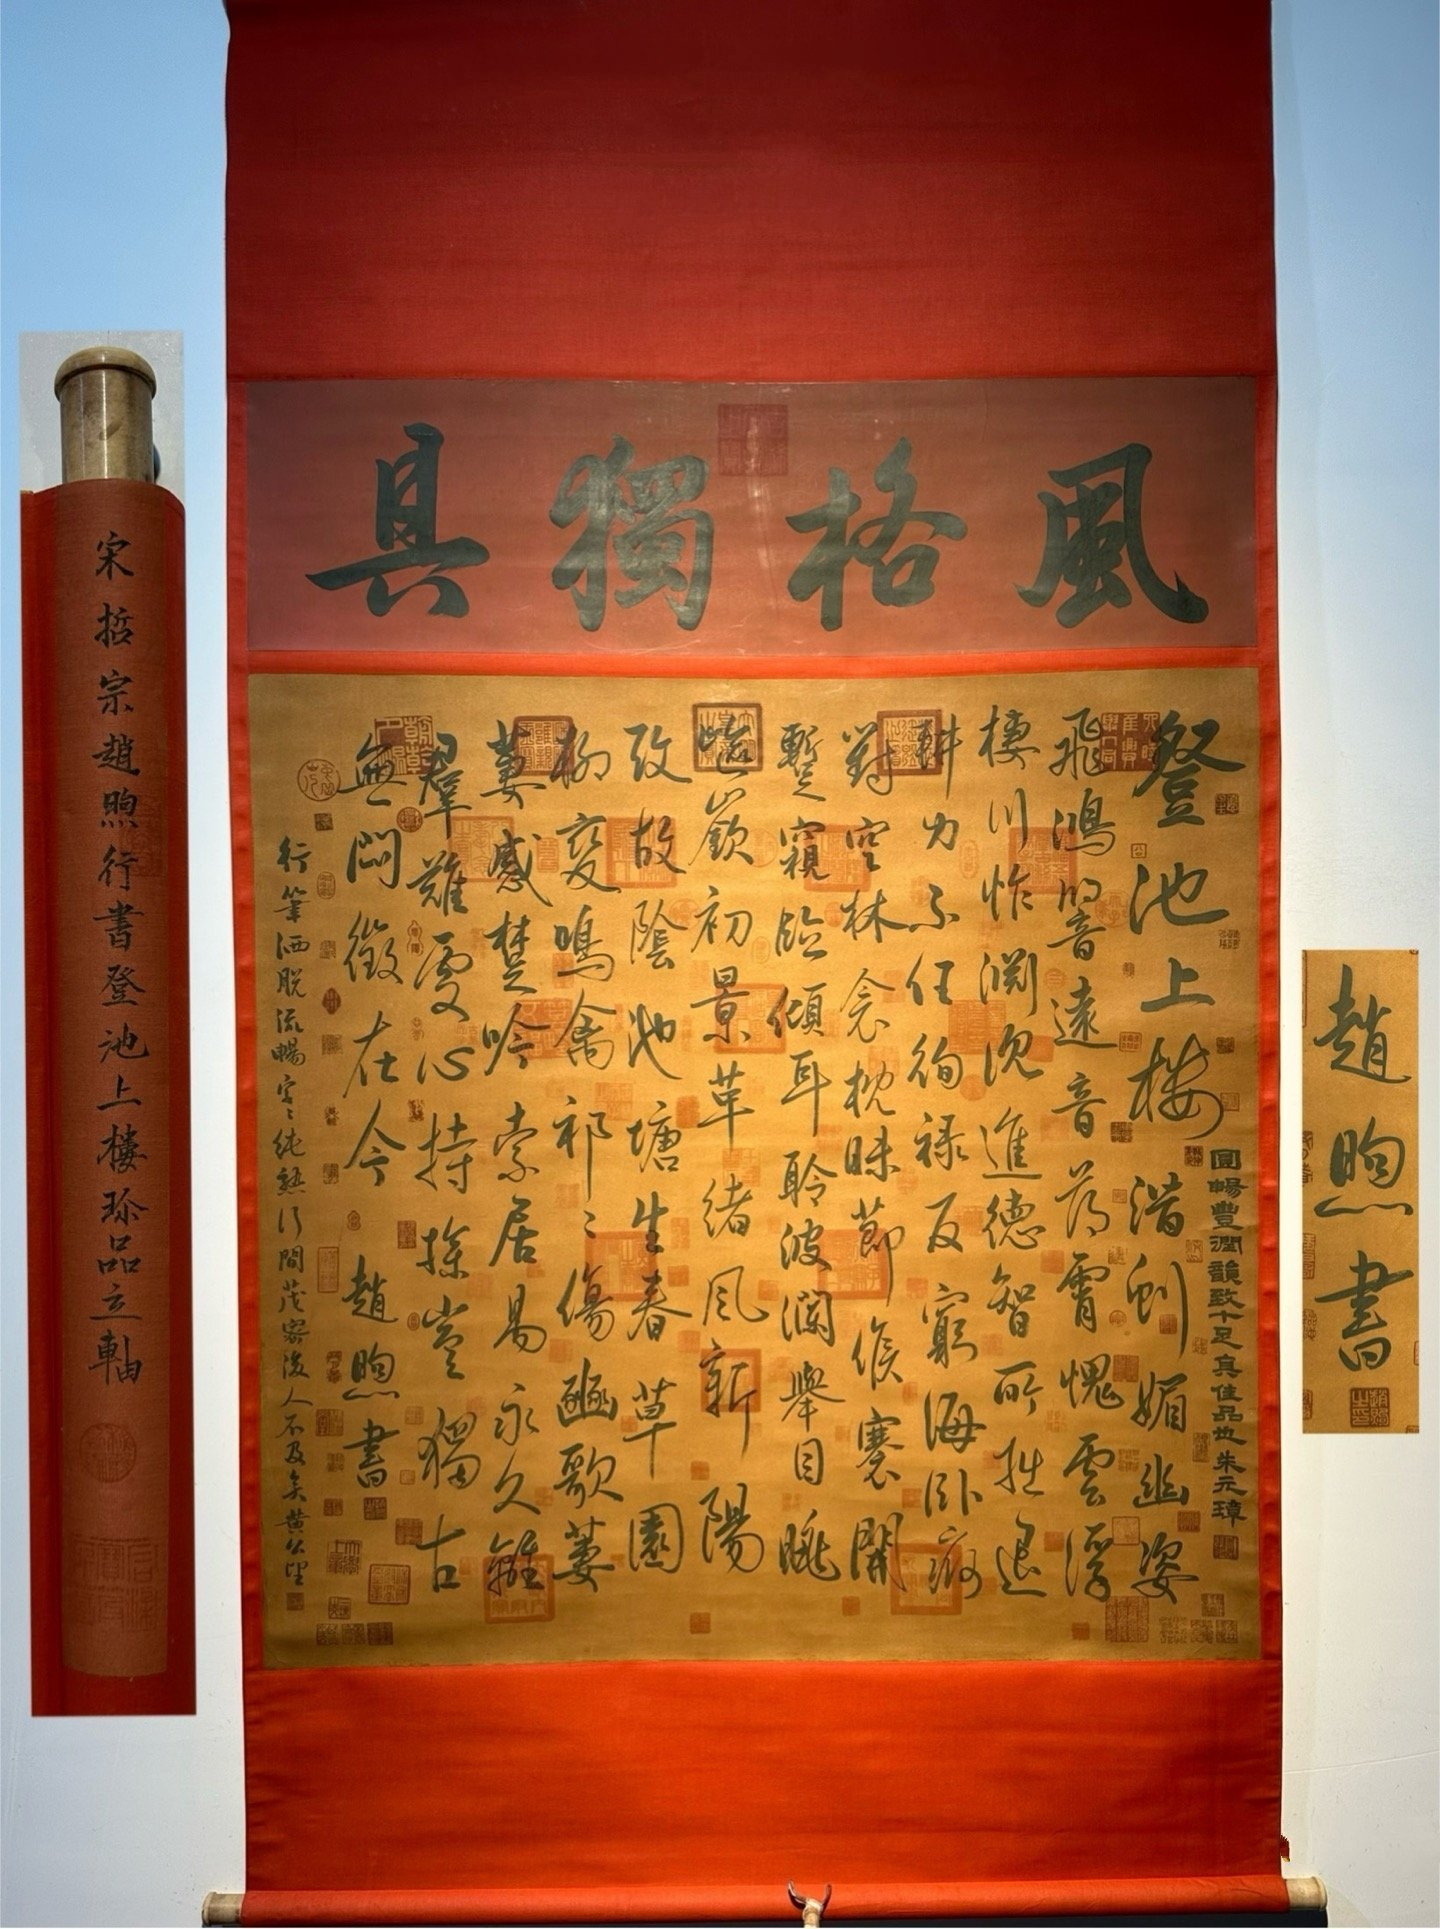 風格獨具
登池上楼 潛虯媚幽姿
飛鴻響遠音薄霄愧雲浮
棲川怍淵沈進德智所拙退
耕力不任徇祿反窮海卧痾
對空林衾枕昧節候褰開
暫窺臨傾耳聆波瀾舉目眺
嶇嶔初景革緒風新陽
改故陰池塘生春草園
柳變鳴禽祁〻傷豳歌萋
萋感楚吟索居易永久離
羣難處心持操豈獨古
無悶徵在今 趙煦書
圓暢豐潤韻致十足真佳品也朱元璋
行筆洒脫流暢字〻純熟行間茂密後人不及矣黃公望
宋哲宗趙煦行書登池上樓珍品立軸
趙煦書